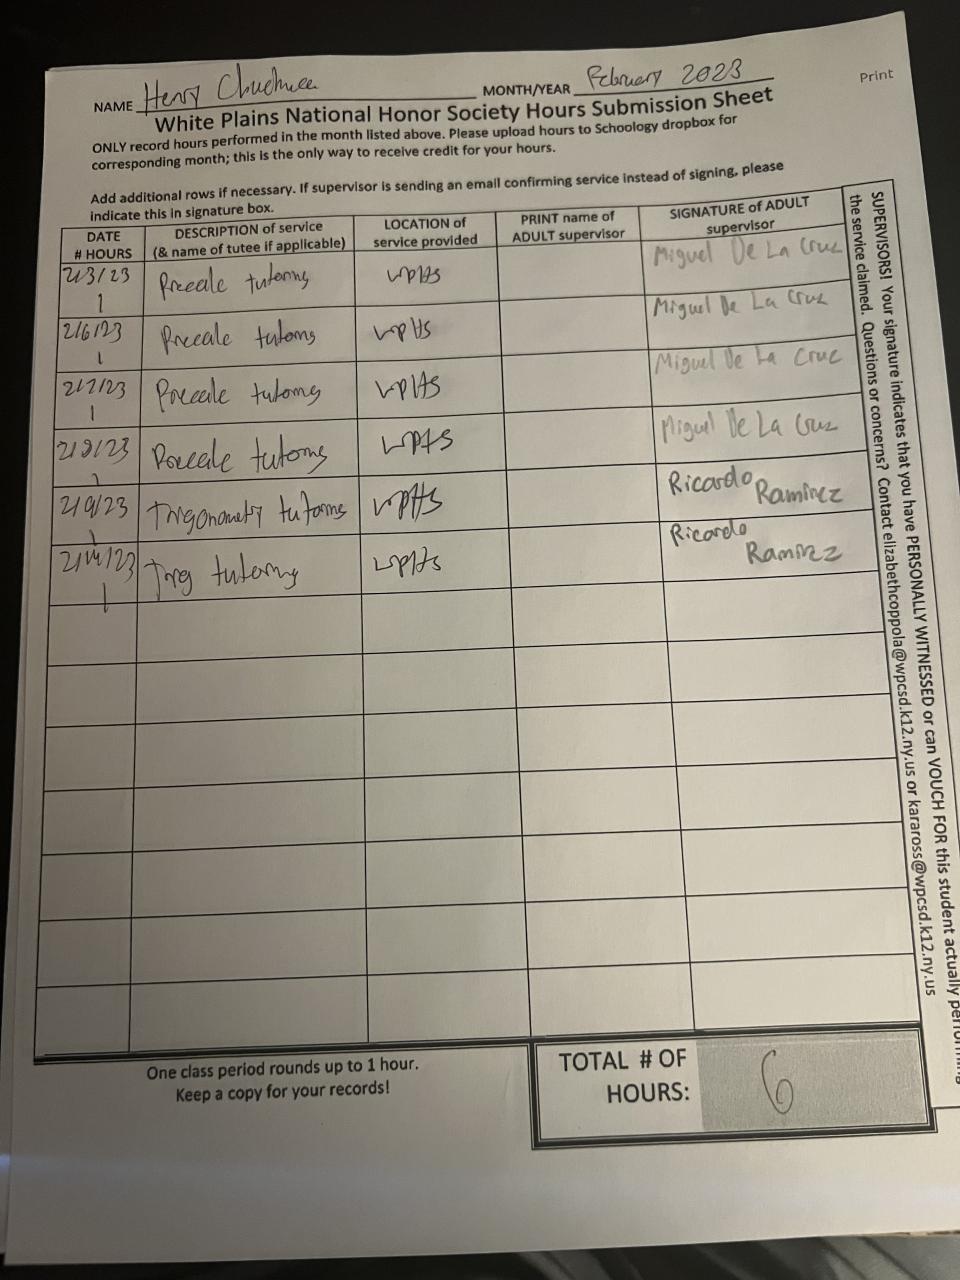 Print
NAME Henry MONTH/YEAR February 2023
White Plains National Honor Society Hours Submission Sheet
ONLY record hours performed in the month listed above. Please upload hours to Schoology dropbox for
corresponding month; this is the only way to receive credit for your hours.
Add additional rows if necessary. If supervisor is sending an email confirming service instead of signing, please
indicate this in signature box.
DATE
# HOURS
DESCRIPTION of service
(& name of tutee if applicable)
LOCATION of
service provided
PRINT name of
ADULT supervisor
SIGNATURE of ADULT
supervisor
2/3/23
1
tutoring
WPHS
Miguel De La Cruz
2/6/23
1
tutoring
WPHS
Miguel De La Cruz
2/7/23
1
tutoring
WPHS
Miguel De La Cruz
1
tutoring
WPHS
Miguel De La Cruz
2/9/23
1
Trigonometry tutoring
WPHS
Ricardo
Ramirez
2/14/23
1
Trig tutoring
WPHS
Ricardo
Ramirez
One class period rounds up to 1 hour.
Keep a copy for your records!
TOTAL # OF
HOURS:
6
SUPERVISORS! Your signature indicates that you have PERSONALLY WITNESSED or can VOUCH FOR this student actually performing
the service claimed. Questions or concerns? Contact elizabethcoppola@wpcsd.k12.ny.us or karaross@wpcsd.k12.ny.us